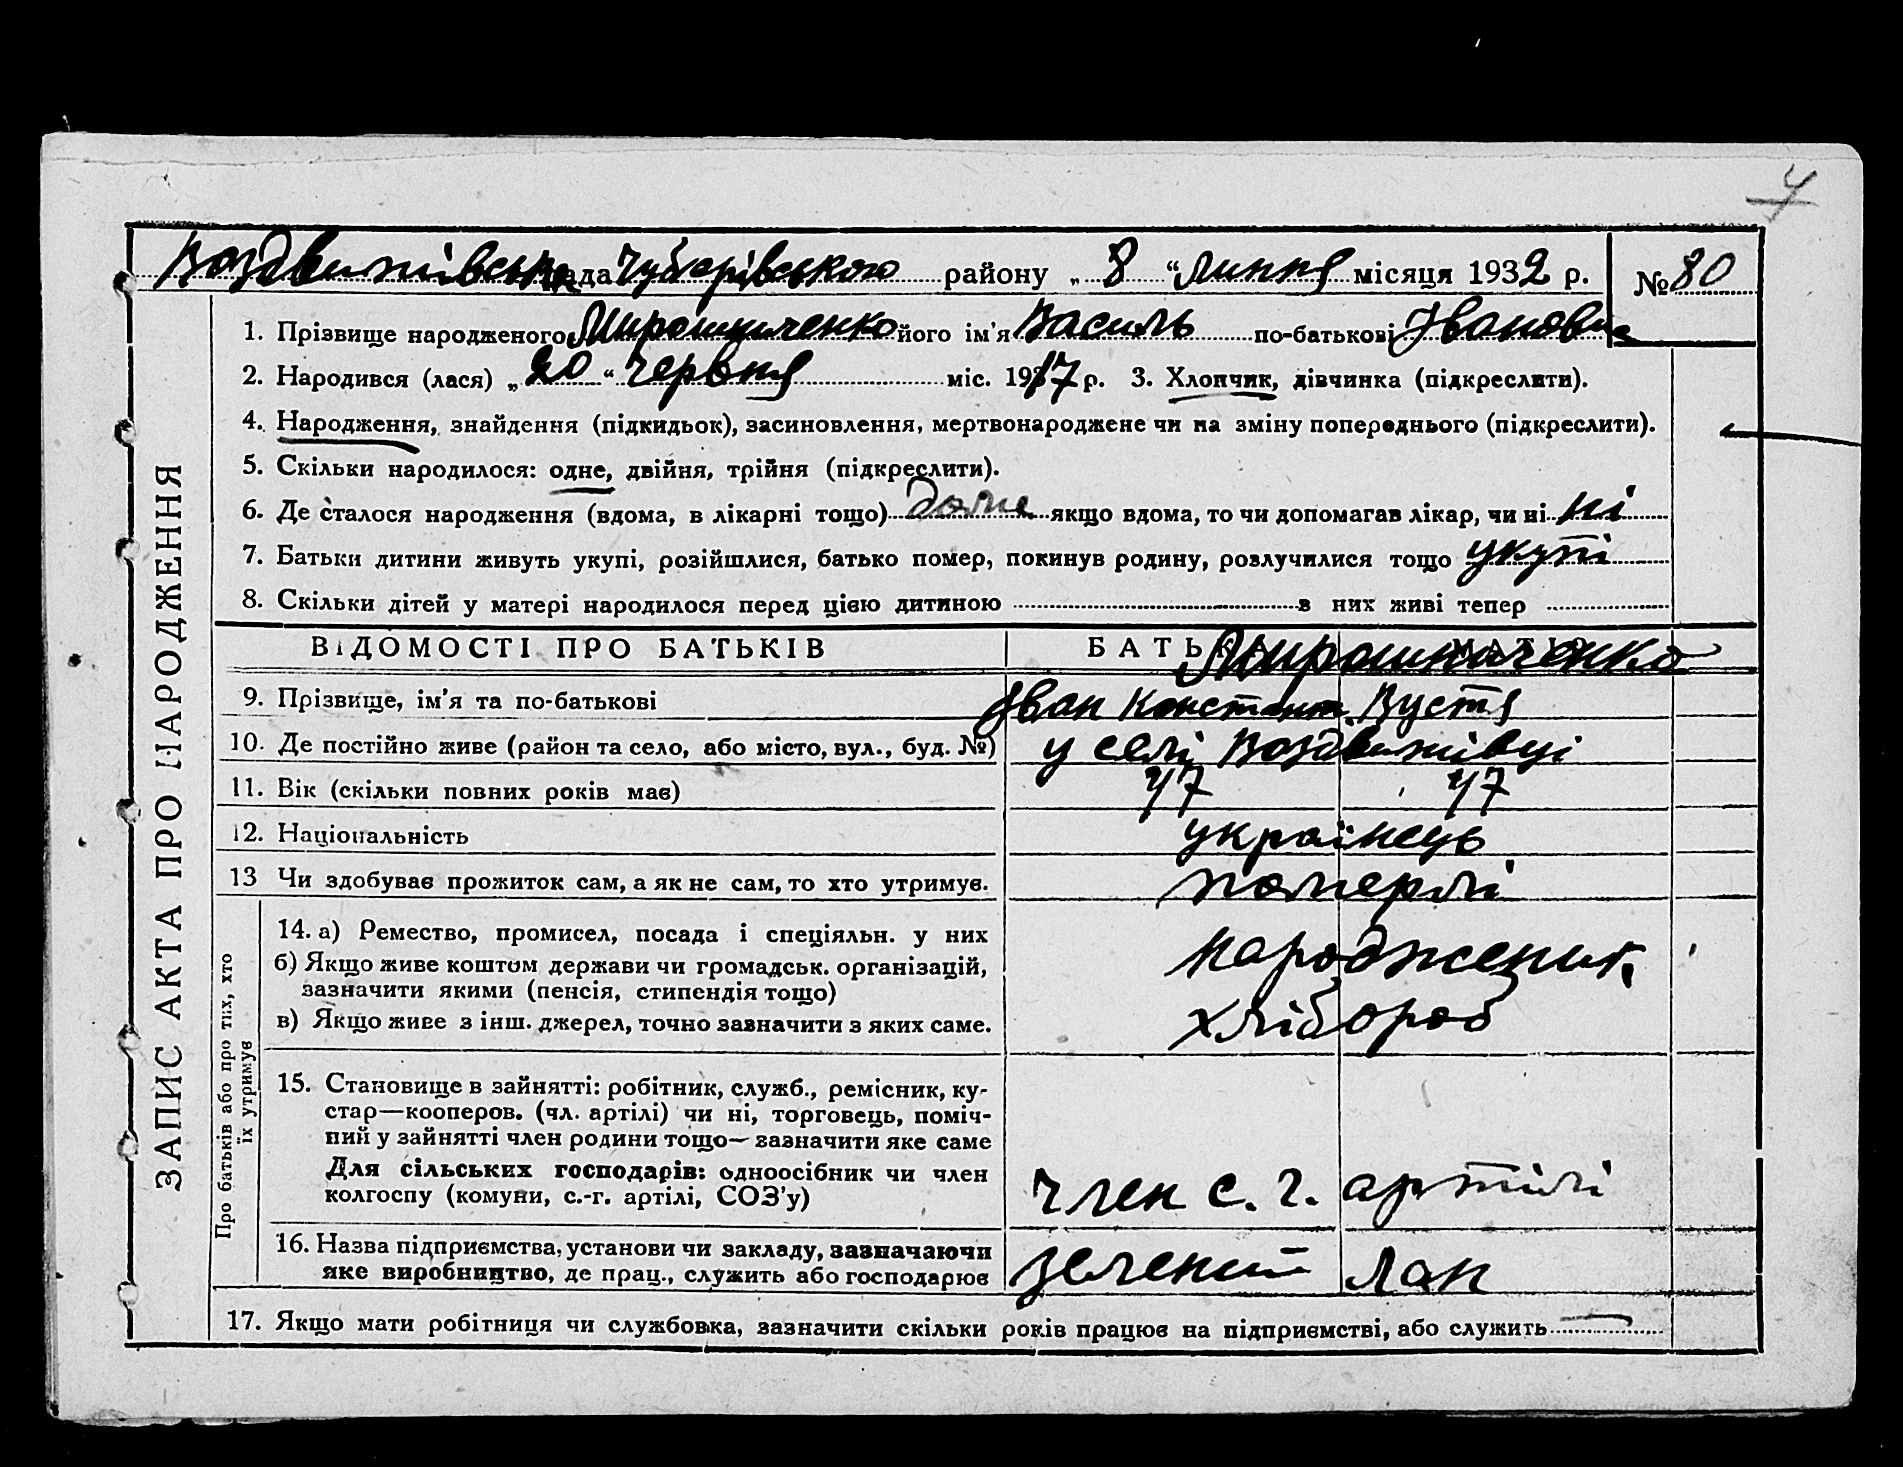 4
Воздвижівська рада Чубарівського району „ 8 “ Липня місяця 1932 р. № 80
1. Прізвище народженого Мирошниченко його ім'я Василь по-батькові Іванович
2. Народився (лася) „ 20 “ червня міс. 1917 р. 3. Хлопчик, дівчинка (підкреслити).
4. Народження, знайдення (підкидьок), засиновлення, мертвонароджене чи на зміну попереднього (підкреслити).
5. Скільки народилося: одне, двійня, трійня (підкреслити).
6. Де сталося народження (вдома, в лікарні тощо) дома якщо вдома, то чи допомагав лікар, чи ні ні
7. Батьки дитини живуть укупі, розійшлися, батько помер, покинув родину, розлучилися тощо укупі
8. Скільки дітей у матері народилося перед цією дитиною в них живі тепер
ВІДОМОСТІ ПРО БАТЬКІВ БАТЬКО МАТИ Мирошниченко
9. Прізвище, ім'я та по-батькові Іван Констант.
10. Де постійно живе (район та село, або місто, вул., буд. №) у селі Воздвижівці
11. Вік (скільки повних років має) 47 47
12. Національність українець
13 Чи здобуває прожиток сам, а як не сам, то хто утримує. померлі
14. а) Ремество, промисел, посада і спеціяльн. у них
б) Якщо живе коштом держави чи громадськ. організацій,
зазначити якими (пенсія, стипендія тощо)
в) Якщо живе з інш. джерел, точно зазначити з яких саме.
хлібороб
15. Становище в зайнятті: робітник, служб., ремісник, ку-
стар—кооперов. (чл. артілі) чи ні, торговець, поміч-
ний у зайнятті член родини тощо— зазначити яке саме
Для сільських господарів: одноосібник чи член
колгоспу (комуни, с.-г. артілі, СОЗ'у) член с. г. артілі
16. Назва підприємства, установи чи закладу, зазначаючи
яке виробництво, де прац., служить або господарює зелений лан
17. Якщо мати робітниця чи службовка, зазначити скільки років працює на підприємстві, або служить —
ЗАПИС АКТА ПРО НАРОДЖЕННЯ
Про батьків або про тих, хто
їх утримує